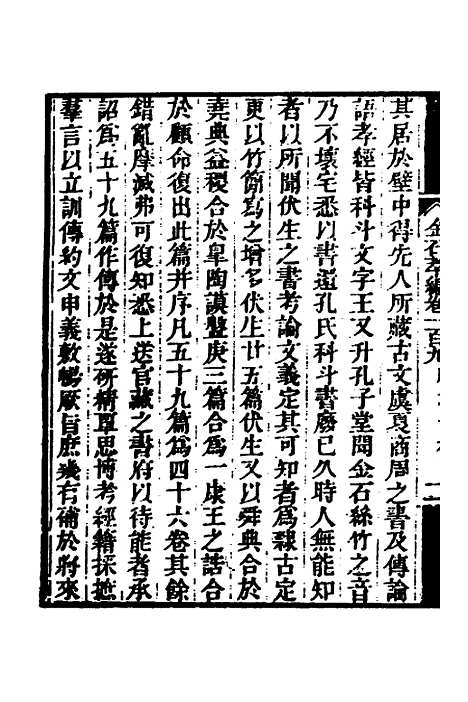 其居於壁中得先人所藏古文虞夏商周之書及傳論
語孝經皆科斗文字王又升孔子堂聞金石絲竹之音
乃不壞宅悉以書還孔氏科斗書廢已久時人無能知
者以所聞伏生之書考論文義定其可知者爲隸古定
更以竹簡寫之增多伏生廿五篇伏生又以舜典合於
堯典益稷合於皐陶謨盤庚三篇合爲一康王之誥合
於顧命復出此篇并序凡五十九篇爲四十六卷其餘
錯亂摩滅弗可復知悉上送官藏之書府以待能者承
詔爲五十九篇作傳於是遂硏精覃思博考經籍採摭
羣言以立訓傳約文申義敷暢厥旨庶幾有補於將來
金石萃編卷一百九